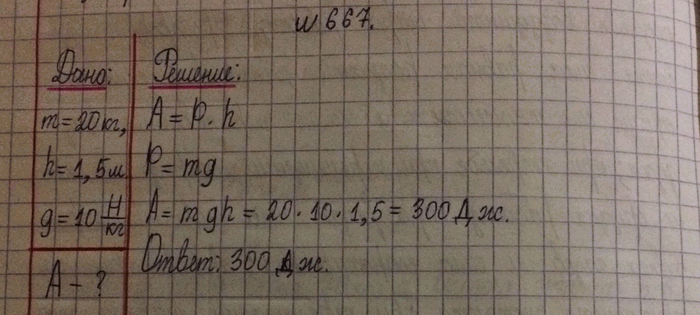 № 667.
Дано:
m = 20 кг,
h = 1,5 м
g = 10 Н/кг
A - ?
Решение:
A = P · h
P = mg
A = mgh = 20 · 10 · 1,5 = 300 Дж.
Ответ: 300 Дж.